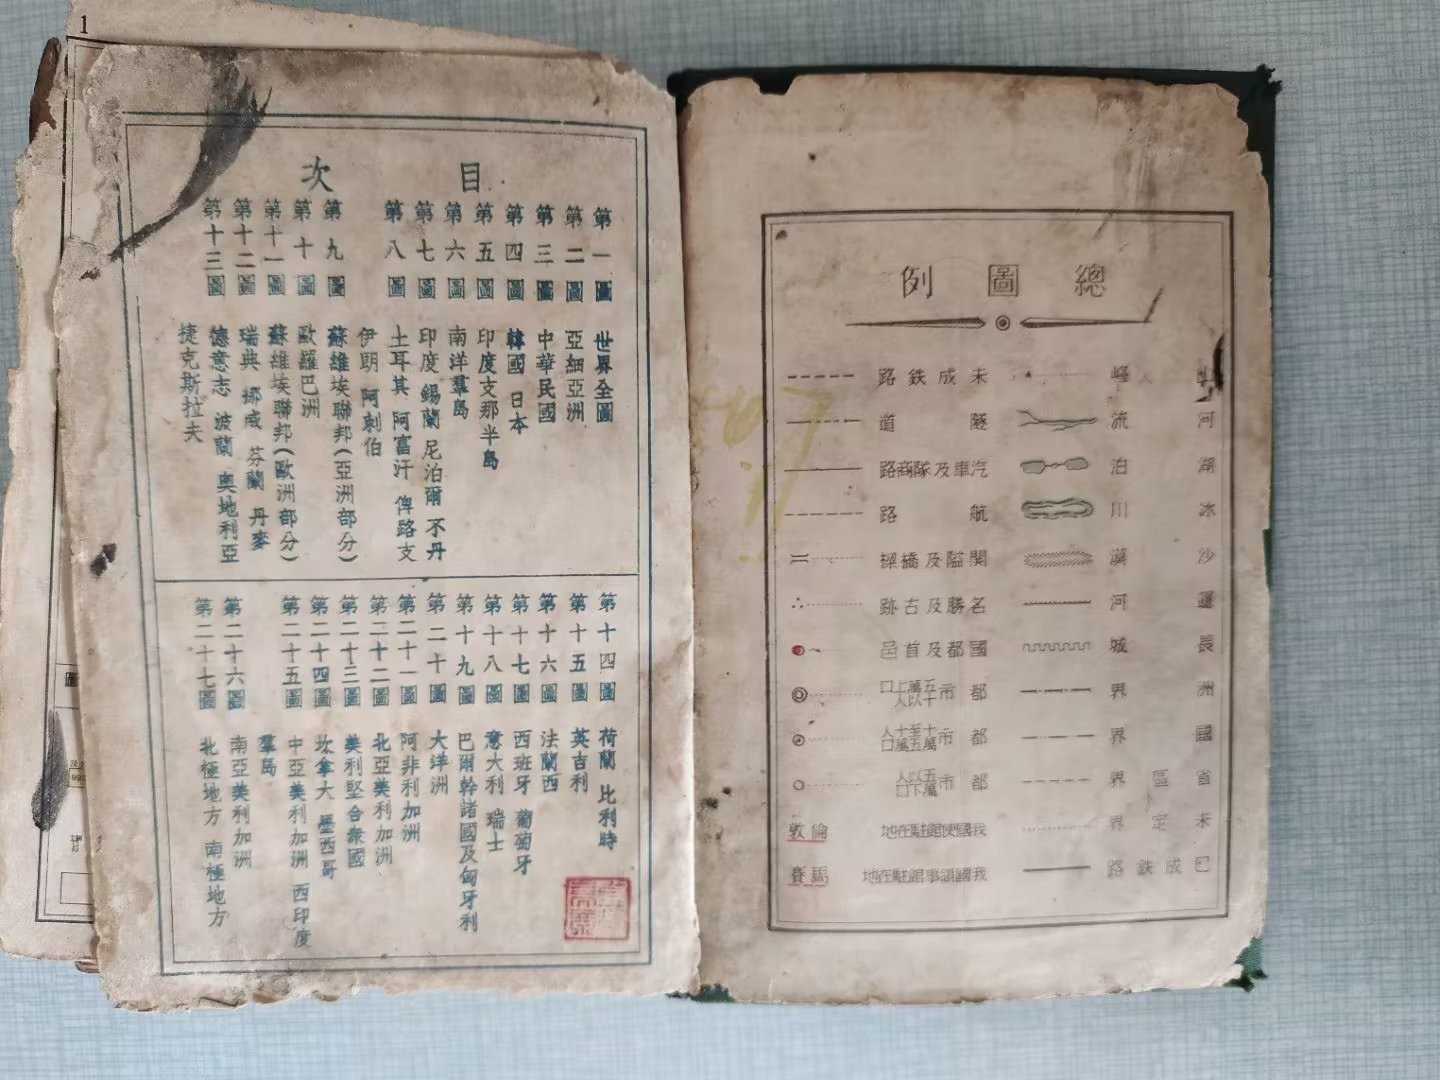 總圖例
河流
湖泊
冰川
沙漠
運河
長城
洲界
國界
省區界
未定界
已成鉄路
未成鉄路
隧道
汽車及隊商路
航路
關隘及橋樑
名勝及古跡
國都及首邑
都市五十萬以上人口
都市十萬至五十萬人口
都市五萬以下人口
我國使館駐在地 倫敦
我國領事館駐在地 馬賽
目次
第一圖 世界全圖
第二圖 亞細亞洲
第三圖 中華民國
第四圖 韓國 日本
第五圖 印度支那半島
第六圖 南洋羣島
第七圖 印度 錫蘭 尼泊爾 不丹
第八圖 土耳其 阿富汗 俾路支
伊朗 阿剌伯
第九圖 蘇維埃聯邦(亞洲部分)
第十圖 歐羅巴洲
第十一圖 蘇維埃聯邦(歐洲部分)
第十二圖 瑞典 挪威 芬蘭 丹麥
第十三圖 德意志 波蘭 奧地利亞
捷克斯拉夫
第十四圖 荷蘭 比利時
第十五圖 英吉利
第十六圖 法蘭西
第十七圖 西班牙 葡萄牙
第十八圖 意大利 瑞士
第十九圖 巴爾幹諸國及匈牙利
第二十圖 大洋洲
第二十一圖 阿非利加洲
第二十二圖 北亞美利加洲
第二十三圖 美利堅合衆國
第二十四圖 坎拿大 墨西哥
第二十五圖 中亞美利加洲 西印度
羣島
第二十六圖 南亞美利加洲
第二十七圖 北極地方 南極地方
1